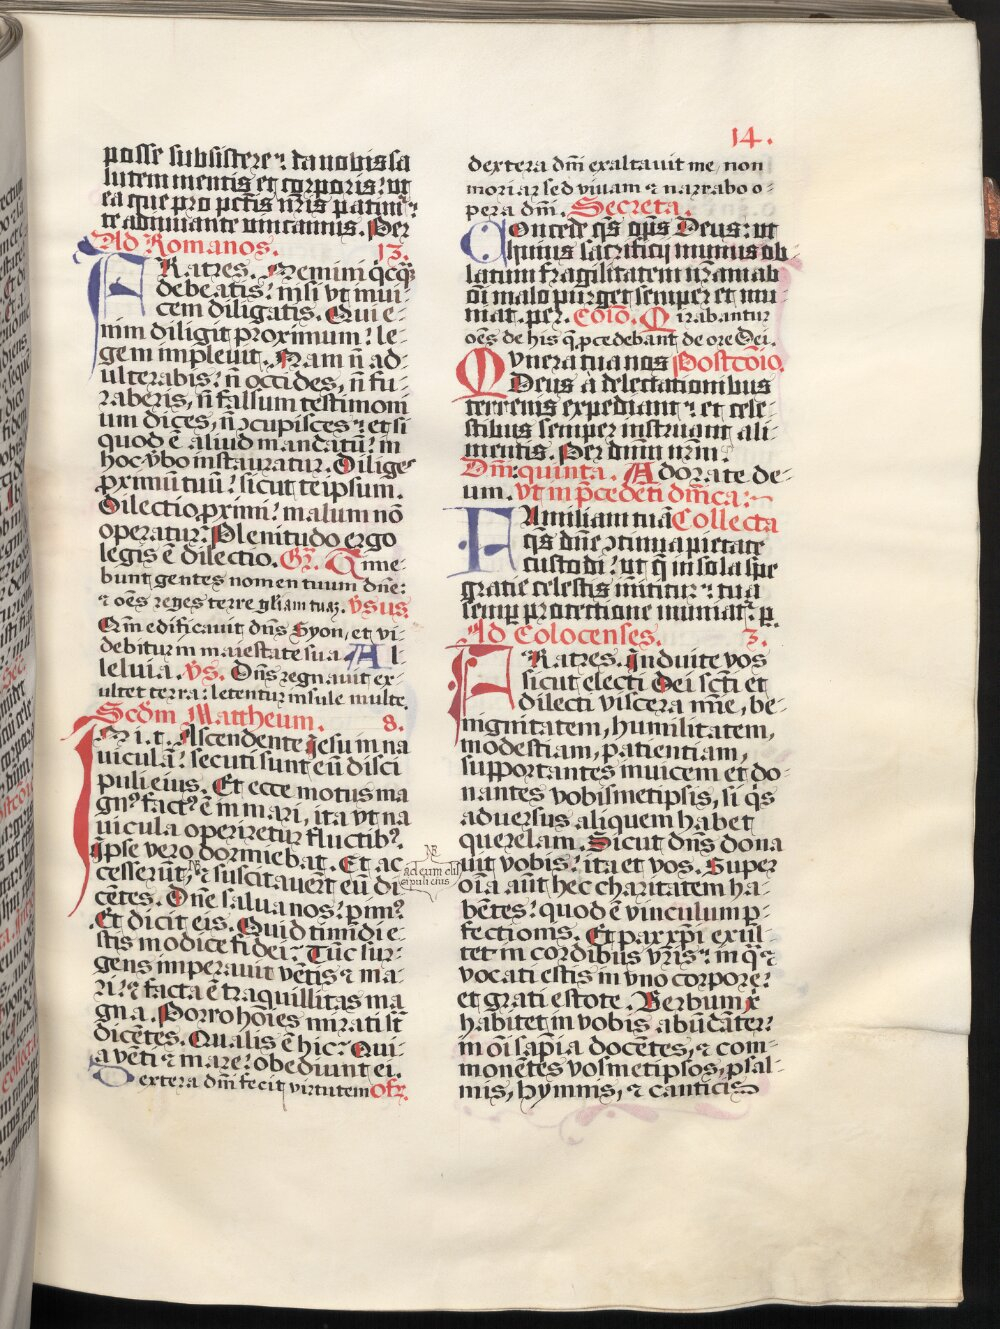 14.
posse subsistere ⁊ da nobis sa
lutem mentis et corporis: ut
ea que pro pctis nr̄is patimꝰ:
te adiuuante uincamus. Per
Ad Romanos. 13.
FRatres. Nemini q̄cq̄
debeatis: nisi vt inui
cem diligatis. Qui e-
nim diligit proximum: le-
gem impleuit. Nam n̄ ad-
ulterabis: n̄ occides, n̄ fu-
raberis, n̄ falsum testimoni
um dices, n̄ ɔcupisces: et si
quod ē aliud mandatū: in
hoc ṽbo instauratur. Diliges
pximū tuū: sicut te ipsum.
Dilectio pximi: malum nō
operatur. Plenitudo ergo
legis ē dilectio. Gr̄. Time-
bunt gentes nomen tuum dn̄e:
⁊ oēs reges terre gl̄iam tuaꝫ. v̄sus.
Qm̄ edificauit dn̄s Syon, et vi-
debitur in maiestate sua. Al-
leluia. v̄s. Dn̄s regnauit ex-
ultet terra: letentur insule multe.
Scdm̄ Mattheum. 8.
IN i. t. Ascendente iesu in na
uiculā: secuti sunt eū disci
puli eius. Et ecce motus ma
gnꝰ factꝰ ē in mari, ita vt na
uicula operiretur fluctibꝰ.
ipse vero dormiebat. Et ac
cesserūt, ⁊ suscitauer̄t eū di
cētes. Dn̄e salua nos: pimꝰ.
Et dicit eis. Quid timidi e-
stis modice fidei? Tūc sur-
gens imperauit vētis ⁊ ma-
ri: ⁊ facta ē traquillitas ma
gna. Porro hoies mirati sūt
dicētes. Qualis ē hic? Qui-
a vēti ⁊ mare: obediunt ei.
Dextera dn̄i fecit virtutem Ofꝫ.
ad eum disc̄
ipuli eius
dextera dn̄i exaltauit me, non
moriar sed viuam ⁊ narrabo o-
pera dn̄i. Secreta.
COncede q̄s op̄s Deus: ut
huius sacrificij munus ob-
latum fragilitatem nr̄am ab
oī malo purget semper et mu
niat. per. Com̄o. Mirabantur
oēs de his q̄ pcedebant de ore Dei.
MVnera tua nos Postcōio.
Deus a delectationibus
terrenis expediant: et cele-
stibus semper instruant ali-
mentis. Per dnm̄ nrm̄.
Dm̄. quinta. Adorate de-
um. vt in p̄cedēti dn̄ica:
FAmiliam tuā Collecta
q̄s dn̄e ɔtinua pietate
custodi: ut q̄ in sola spe
gratie celestis innititur: tua
semp protectione muniatꝛ. p.
Ad Colocenses. 3.
FRatres. Induite vos
sicut electi Dei sc̄ti et
dilecti viscera mīe, be-
nignitatem, humilitatem,
modestiam, patientiam,
supportantes inuicem et do-
nantes vobismetipsis, si q̄s
aduersus aliquem habet
querelam. Sicut dn̄s dona
uit vobis: ita et vos. Super
oīa aūt hec charitatem ha-
bētes: quod ē vinculum p-
fectionis. Et pax xp̄i exul-
tet in cordibus vr̄is: in qua ⁊
vocati estis in vno corpore:
et grati estote. Verbum x̄
habitet in vobis abūdāter:
in oī sap̄ia docētes, ⁊ com-
monētes vosmetipsos, psal-
mis, hymnis, ⁊ canticis